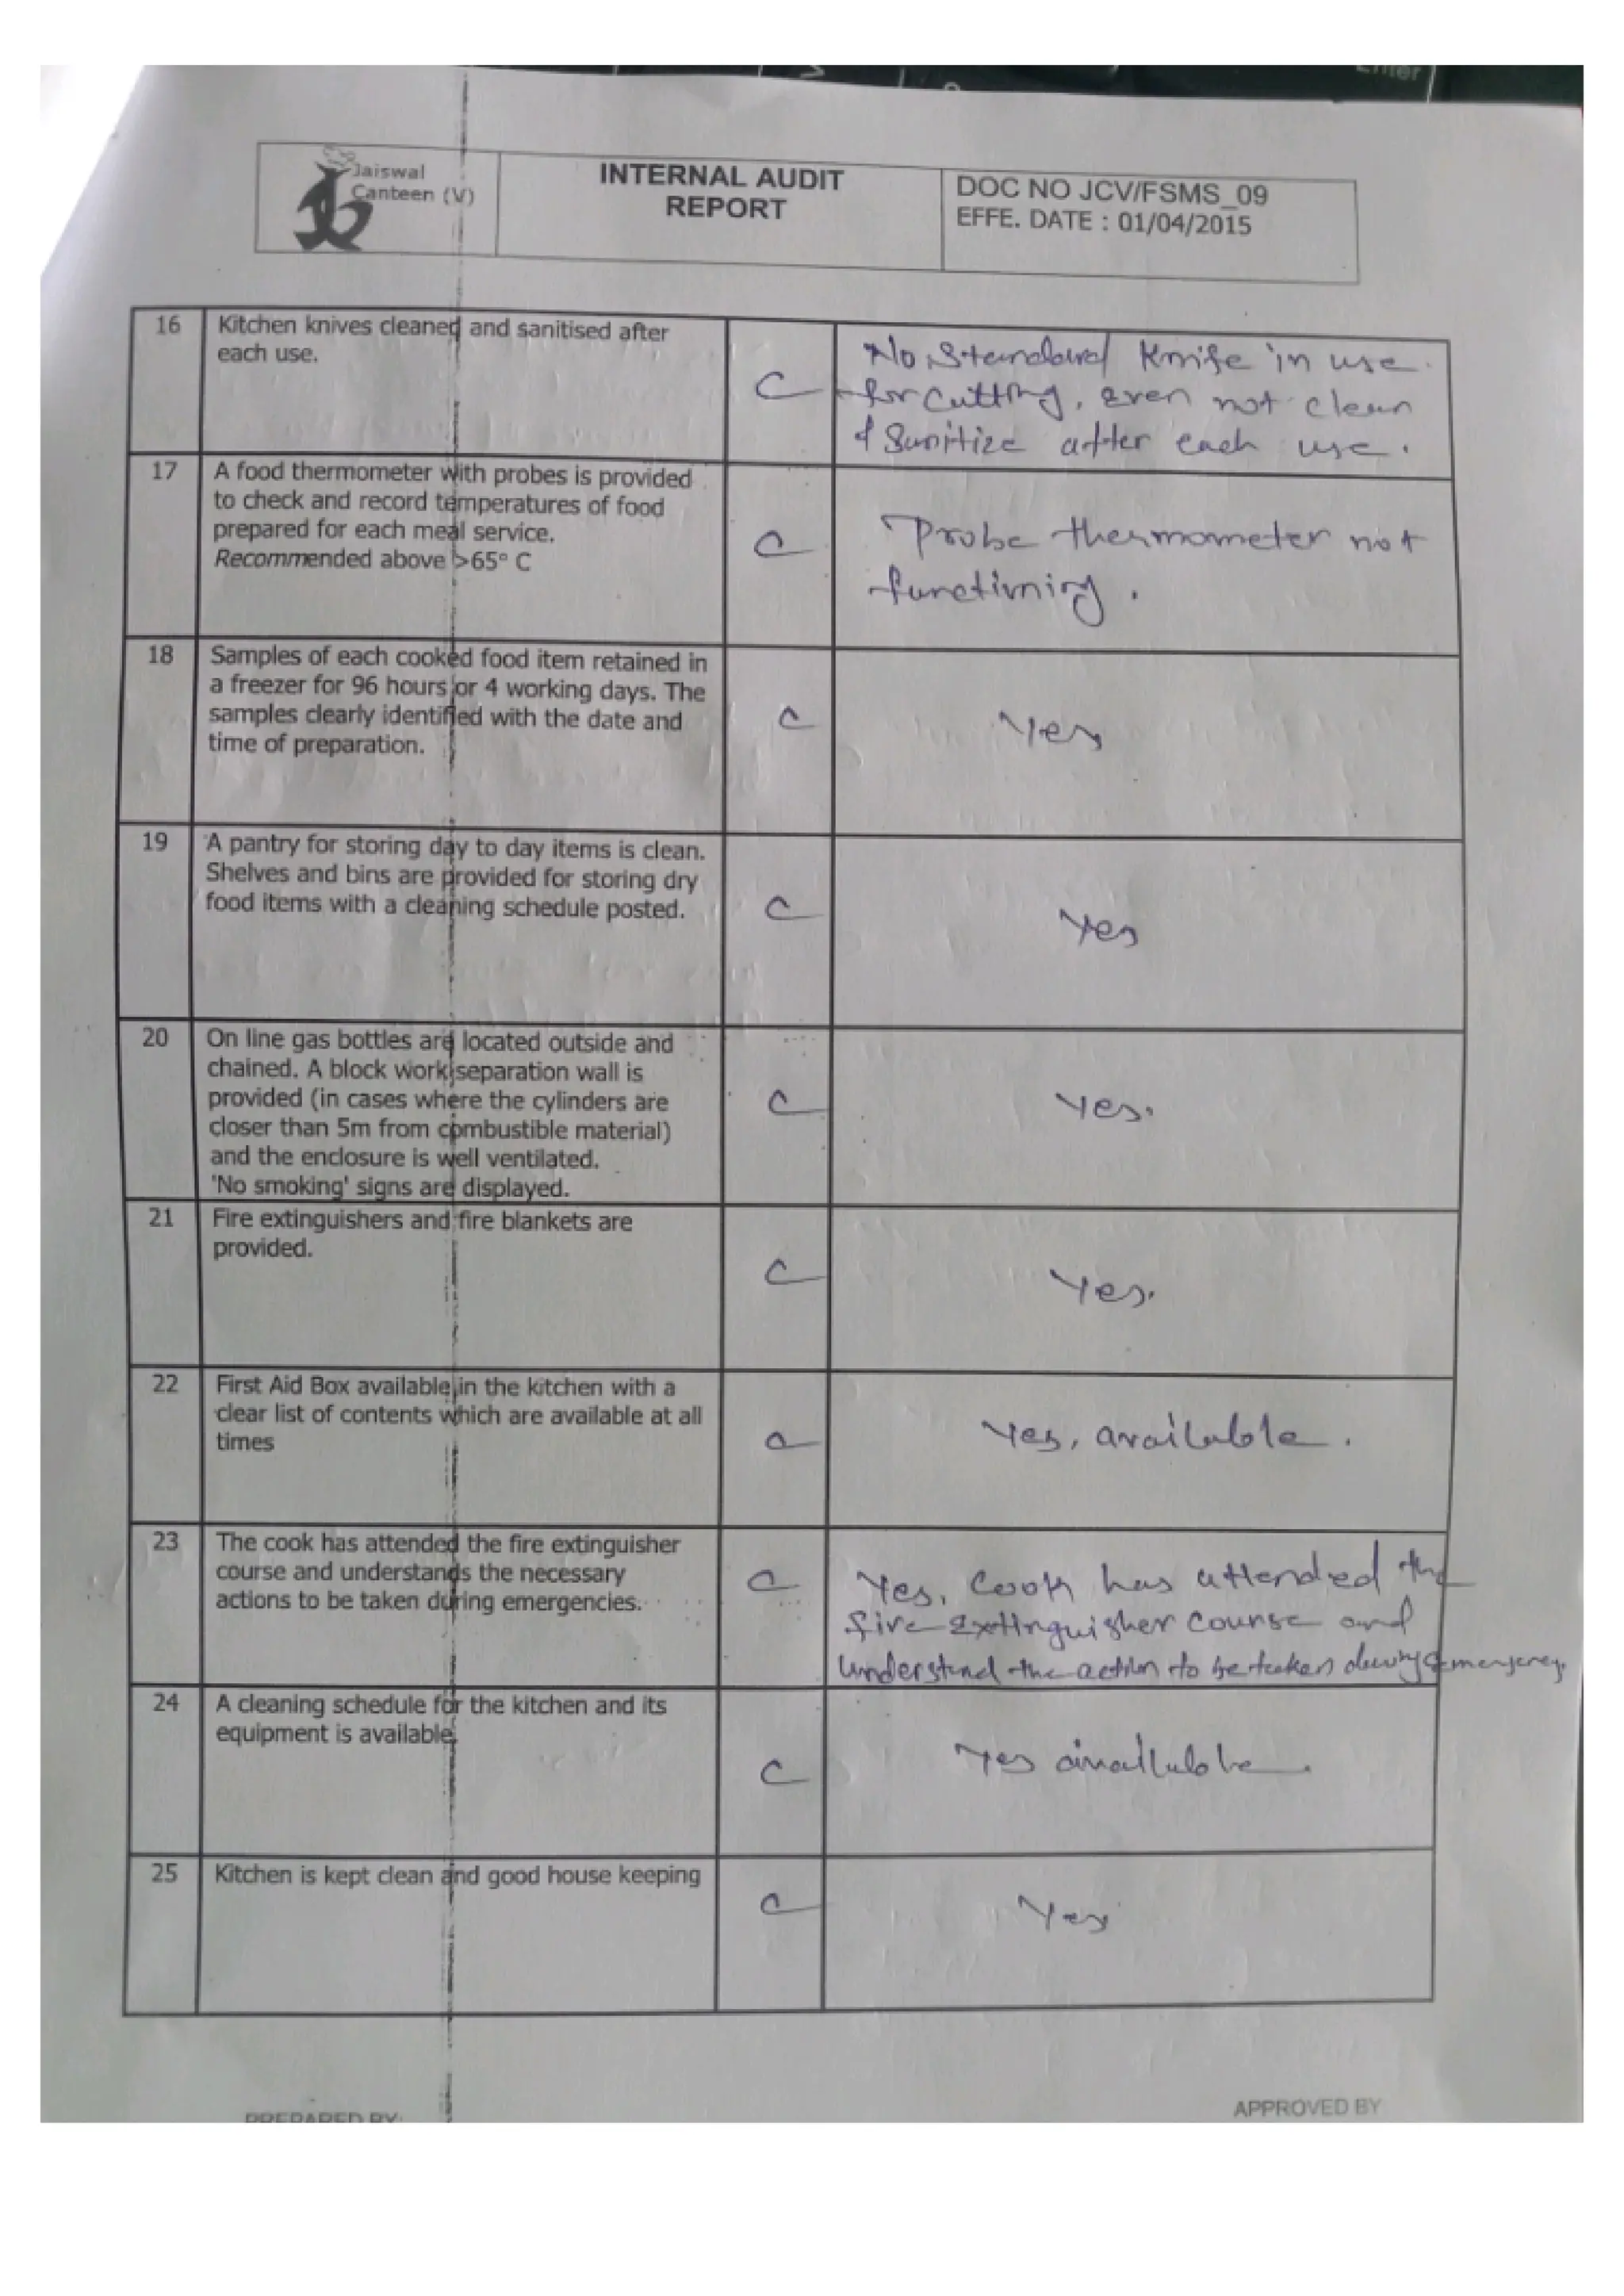 Enter
Jaiswal
Canteen (V)
INTERNAL AUDIT
REPORT
DOC NO JCV/FSMS_09
EFFE. DATE : 01/04/2015
16
Kitchen knives cleaned and sanitised after
each use.
C
No Standard Knife in use.
for cutting, even not clean
& Sanitize after each use.
17
A food thermometer with probes is provided
to check and record temperatures of food
prepared for each meal service.
Recommended above >65° C
C
Probe thermometer not
functioning.
18
Samples of each cooked food item retained in
a freezer for 96 hours or 4 working days. The
samples clearly identified with the date and
time of preparation.
C
Yes
19
A pantry for storing day to day items is clean.
Shelves and bins are provided for storing dry
food items with a cleaning schedule posted.
C
Yes
20
On line gas bottles are located outside and
chained. A block work separation wall is
provided (in cases where the cylinders are
closer than 5m from combustible material)
and the enclosure is well ventilated.
'No smoking' signs are displayed.
C
Yes.
21
Fire extinguishers and fire blankets are
provided.
C
Yes.
22
First Aid Box available in the kitchen with a
clear list of contents which are available at all
times
C
Yes, available.
23
The cook has attended the fire extinguisher
course and understands the necessary
actions to be taken during emergencies.
C
Yes, Cook has attended the
fire extinguisher course and
understand the action to be taken during emergency.
24
A cleaning schedule for the kitchen and its
equipment is available.
C
Yes available.
25
Kitchen is kept clean and good house keeping
C
Yes
PREPARED BY:
APPROVED BY